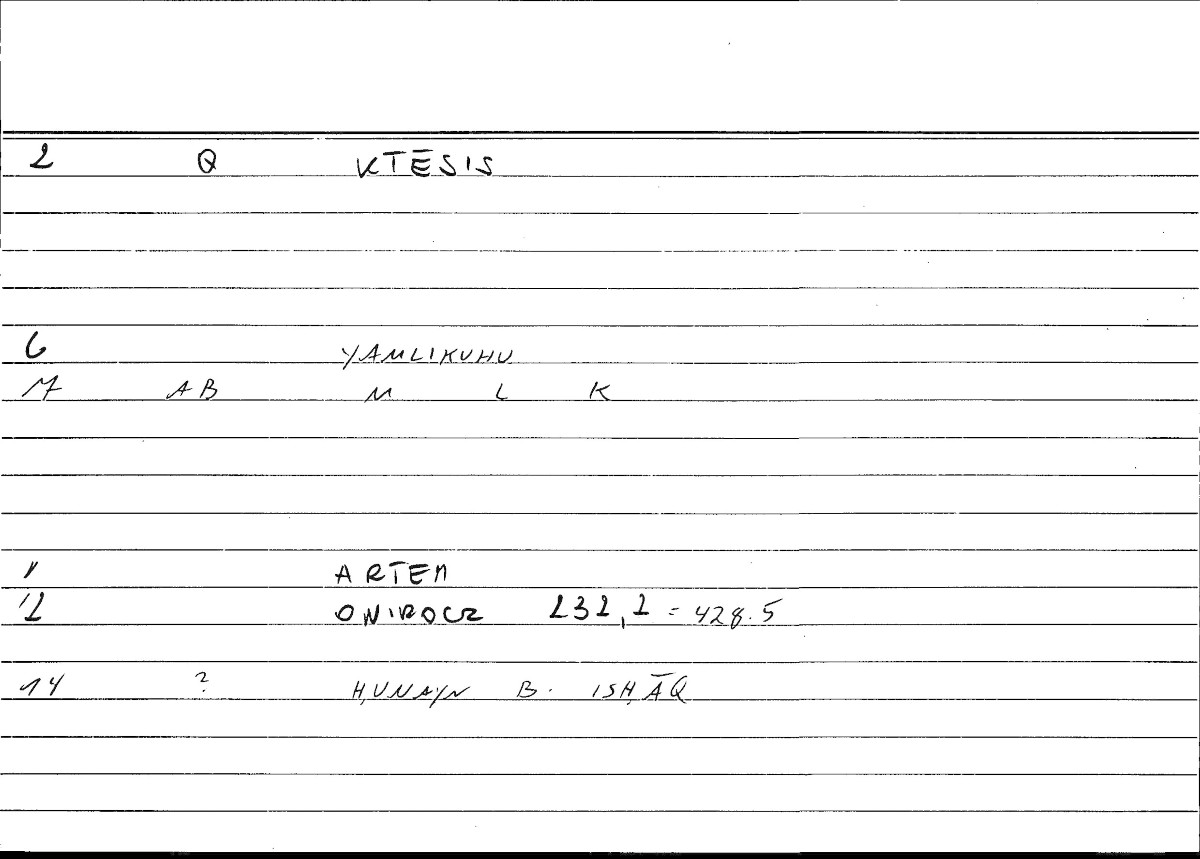 2 Q KTĒSIS
6 YAMLIKUHU
7 AB M L K
1 ARTEM
12 ONIROCR 232,2 = 428.5
14 ? ḤUNAYN B. ISḤĀQ